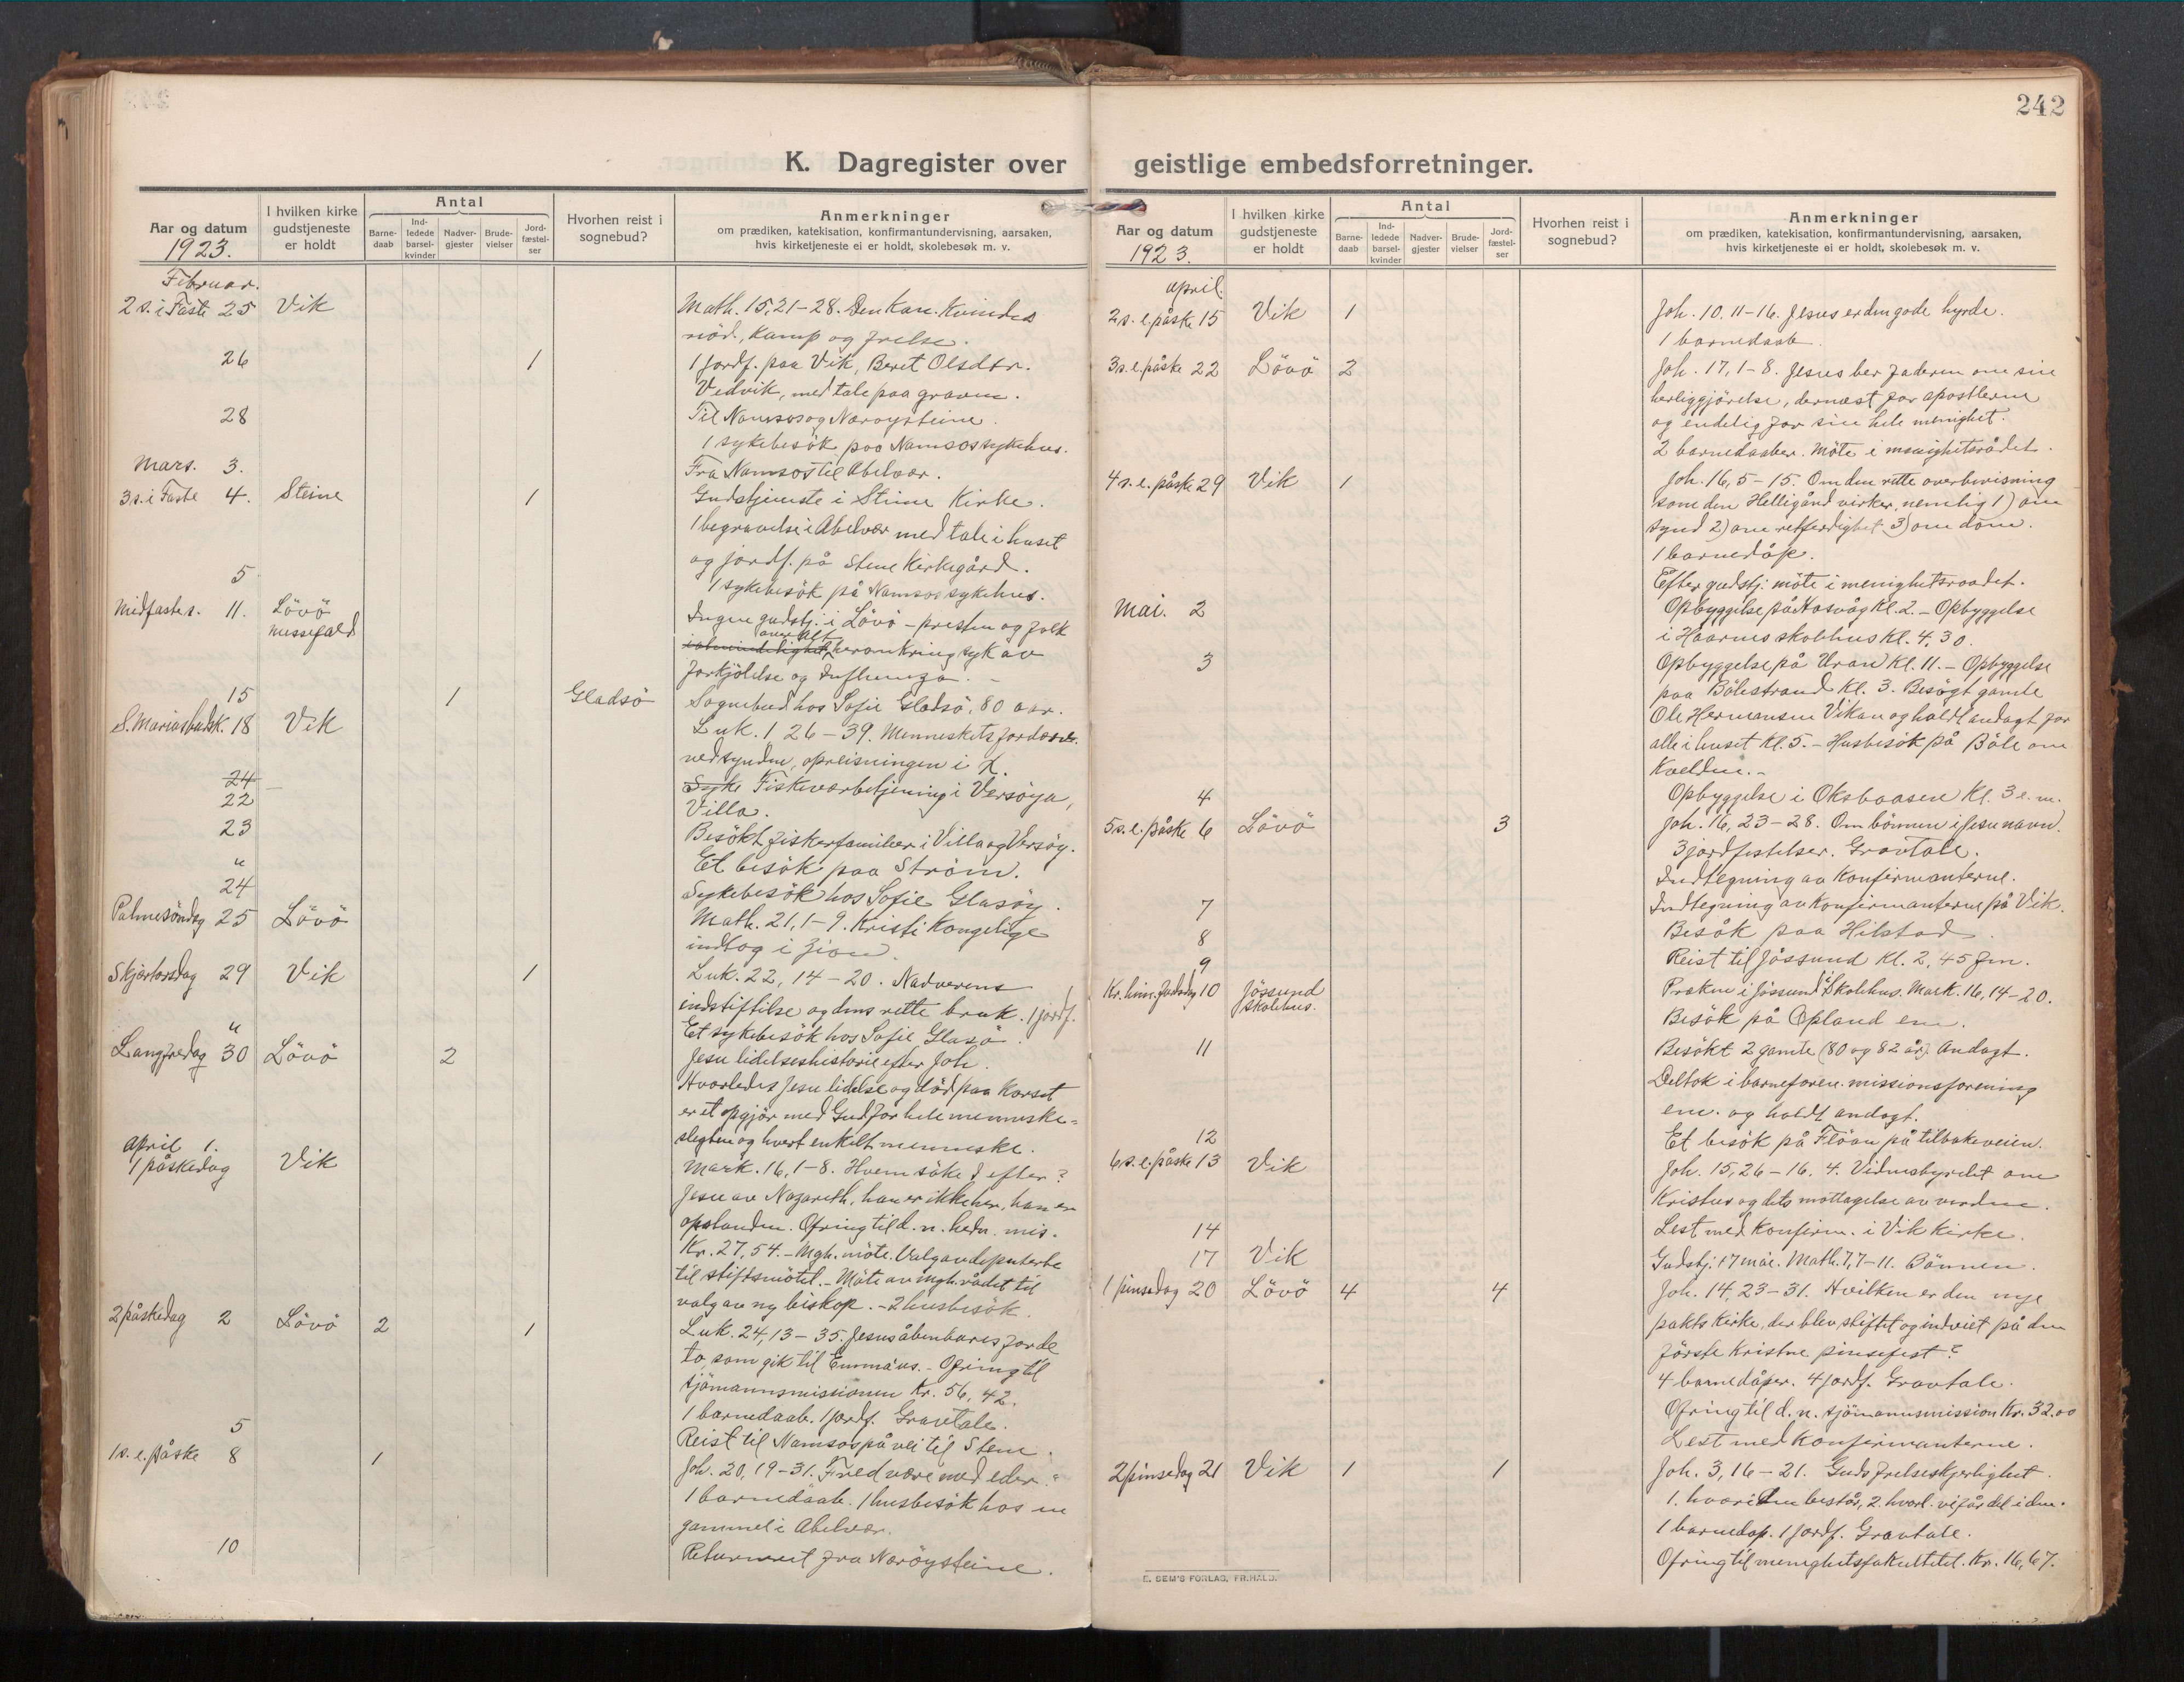 242
K. Dagregister over geistlige embedsforretninger.
Aar og datum
1923.
I hvilken kirke gudstjeneste er holdt
Antal
Barne-daab
Ind-ledede barsel-kvinder
Nadver-gjester
Brude-vielser
Jord-fæstel-ser
Hvorhen reist i sognebud?
Anmerkninger
om prædiken, katekisation, konfirmantundervisning, aarsaken,
hvis kirketjeneste ei er holdt, skolebesøk m. v.
Februar.
2 s. i Faste 25 Vik Math. 15, 21-28. Den kan. kvindes
nöd, kamp og frelse.
26 1 1 jordf. paa Vik, Beret Olsdtr.
Vedvik, med tale paa graven.
28 Til Namsos og Nærøysteine.
1 sykebesök paa Namsos sykehus.
Mars. 3. Fra Namsos til Abelvær.
3 s. i Faste 4. Steine 1 Gudstjeneste i Steine Kirke.
1 begravelse i Abelvær med tale i huset
og jordf. på Stene Kirkegård.
5 1 sykebesök på Namsos sykehus.
Midfastes. 11. Lövö Ingen gudstj. i Lövö - presten og folk
messefald
over alt heromkring syk av
forkjölelse og Influenza. -
15 1 Gladsö Sognebud hos Sofie Gladsö, 80 aar.
S. Mariasbudsk. 18 Vik Luk. 1 26-39. Menneskets
ved synden, opreisningen i X.
24
22 Syke Fiskeværbetjening i Versöya,
Villa.
23 Besökt fiskerfamilier i Villa og Versöy.
" Et besök paa Ström.
24 Sykebesök hos Sofie Glasöy.
Palmesöndag 25 Lövö Math. 21, 1-9. Kristi kongelige
indtog i Zion.
Skjærtorsdag 29 Vik 1 Luk. 22, 14-20. Nadverens
indstiftelse og dens rette bruk. 1 jordf.
" Et sykebesök hos Sofie Glasö.
Langfredag 30 Lövö 2 Jesu lidelseshistorie efter Joh.
Hvorledes Jesu lidelse og död paa korset
er et opgjör med Gud for hele menneske-
slegten og hvert enkelt menneske.
April 1.
1 påskedag Vik Mark. 16, 1-8. Hvem söke I efter?
Jesu av Nazareth, han er ikke her, han er
opstanden. Ofring til d. n. hedn. mis.
Kr. 27,54. - Mgh. möte. Valg av deputerte
til stiftsmötet. - Möte av mgh.rådet til
valg av ny biskop. - 2 husbesök.
2 påskedag 2 Lövö 2 1 Luk. 24, 13-35. Jesus åbenbares for de
to, som gik til Emmaus. - Ofring til
sjömannsmissionen Kr. 56,42.
1 barnedaab. 1 jordf. Gravtale.
5 Reist til Namsos på vei til Stene.
1 s. e. påske 8 1 Joh. 20, 19-31. Fred være med eder.
1 barnedaab. 1 husbesök hos en
gammel i Abelvær.
10 fra Nærøysteine.
Aar og datum
1923.
I hvilken kirke gudstjeneste er holdt
Antal
Barne-daab
Ind-ledede barsel-kvinder
Nadver-gjester
Brude-vielser
Jord-fæstel-ser
Hvorhen reist i sognebud?
Anmerkninger
om prædiken, katekisation, konfirmantundervisning, aarsaken,
hvis kirketjeneste ei er holdt, skolebesøk m. v.
April.
2 s. e. påske 15 Vik 1 Joh. 10. 11-16. Jesus er den gode hyrde.
1 barnedaab.
3 s. e. påske 22 Lövö 2 Joh. 17, 1-8. Jesus ber faderen om sin
herliggjörelse, dernæst for apostlerne
og endelig for sin hele menighet.
2 barnedaaber. Möte i menighetsrådet.
4 s. e. påske 29 Vik 1 Joh. 16, 5-15. Om den rette overbevisning
som den Helligånd virker, nemlig 1) om
synd 2) om retferdighet 3) om döm.
1 barnedåp.
Efter gudstj. möte i menighetsraadet.
Mai. 2 Opbyggelse på Kl. 2. - Opbyggelse
i Haarnes skolehus Kl. 4,30.
3 Opbyggelse på Uran Kl. 11. - Opbyggelse
paa Bölestrand Kl. 3. Besögt gamle
Ole Hermansen Vikan og holdt andagt for
alle i huset Kl. 5. - Husbesök på Böle om
kvelden. -
4 Opbyggelse i Oksbaasen Kl. 3 e. m.
5 s. e. påske 6 Lövö 3 Joh. 16, 23-28. Om bönnen i Jesu navn.
3 jordfestelser. Gravtale.
Indtegning av konfirmanterne.
7 Indtegning av konfirmanterne på Vik.
8 Besök paa Hilstad.
9 Reist til Jössund Kl. 2,45 fm.
Kr. him. fartsdag 10 Jössund Præken i Jössund Skolehus. Mark. 16, 14-20.
skolehus.
Besök på Opland em.
11 Besökt 2 gamle (80 og 82 år). Andagt.
Deltok i barneforen. missionsforening
em. og holdt andagt.
12 Et besök på Flöan på tilbakeveien.
6 s. e. påske 13 Vik Joh. 15, 26-16, 4. Vidnesbyrdet om
Kristus og dets mottagelse av verden.
14 Lest med konfirm. i Vik kirke.
17 Vik Gudstj. 17 mai. Math. 7, 7-11. Bönnen.
1 pinsedag 20 Lövö 4 4 Joh. 14, 23-31. Hvilken er den nye
pakts kirke, der blev stiftet og indviet på den
förste kristne pinsefest?
4 barnedåper. 4 jordf. Gravtale.
Ofring til d. n. sjömannsmission Kr. 32.00
Lest med konfirmanterne.
2 pinsedag 21 Vik 1 1 Joh. 3, 16-21. Guds frelseskjerlighet.
1. hvori den består, 2. hvorl. vi får del i den.
1 barnedåp. 1 jordf. Gravtale.
Ofring til menighetsfakultetet. Kr. 16,67.
E. SEM'S FORLAG, FR.HALD.